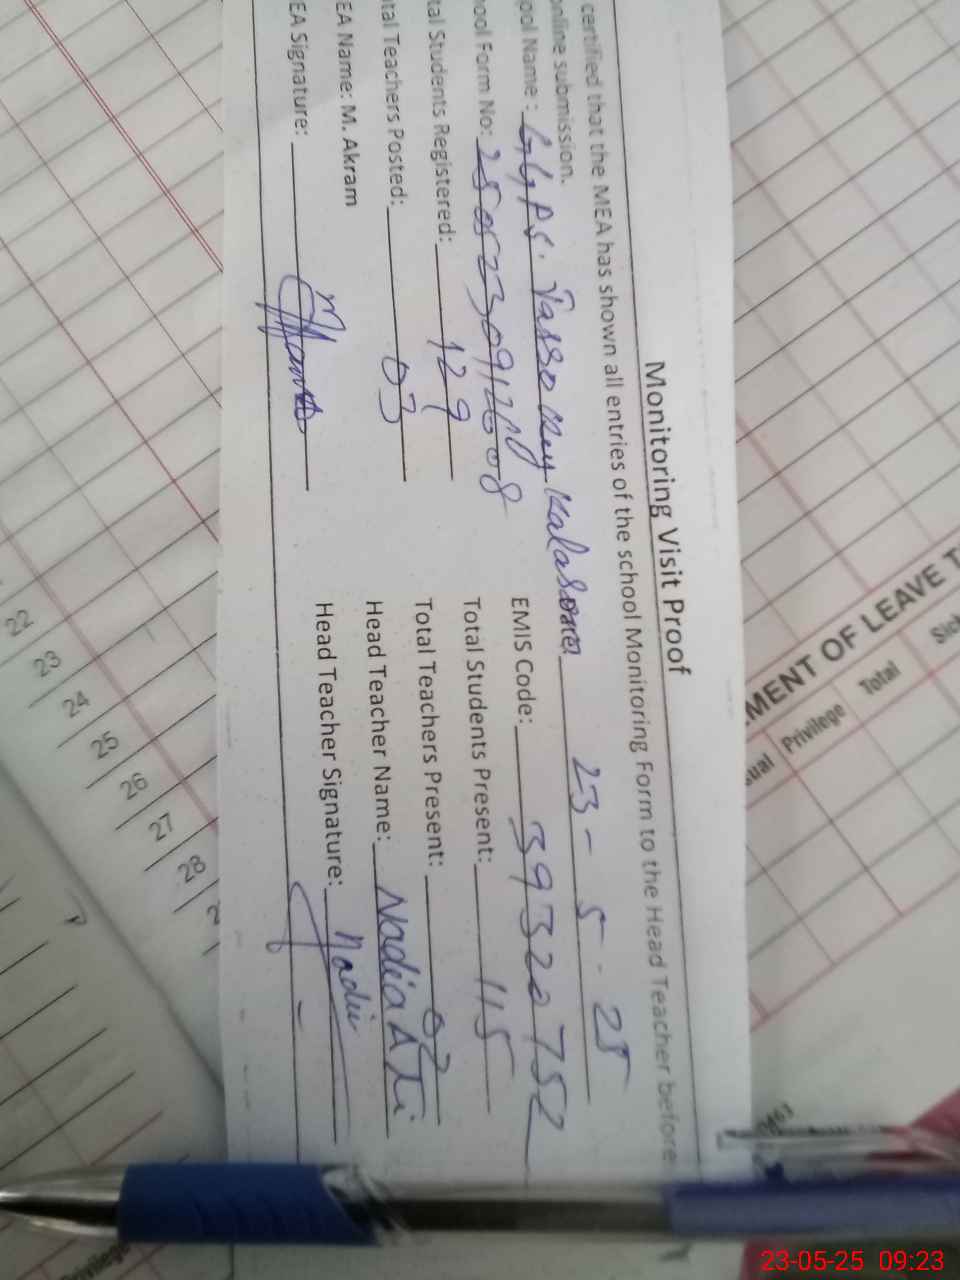 Monitoring Visit Proof
certified that the MEA has shown all entries of the school Monitoring Form to the Head Teacher before
online submission.
ool Name: GGPS. Jasso Key Kalason 23-5-25
ool Form No: EMIS Code: 39320752
tal Students Registered: 129 Total Students Present: 115
tal Teachers Posted: 03 Total Teachers Present: 02
EA Name: M. Akram Head Teacher Name: Nadia
EA Signature: Head Teacher Signature: Nadia
MENT OF LEAVE
Privilege Total Sick
22
23
24
25
26
27
28
Privilege
23-05-25 09:23